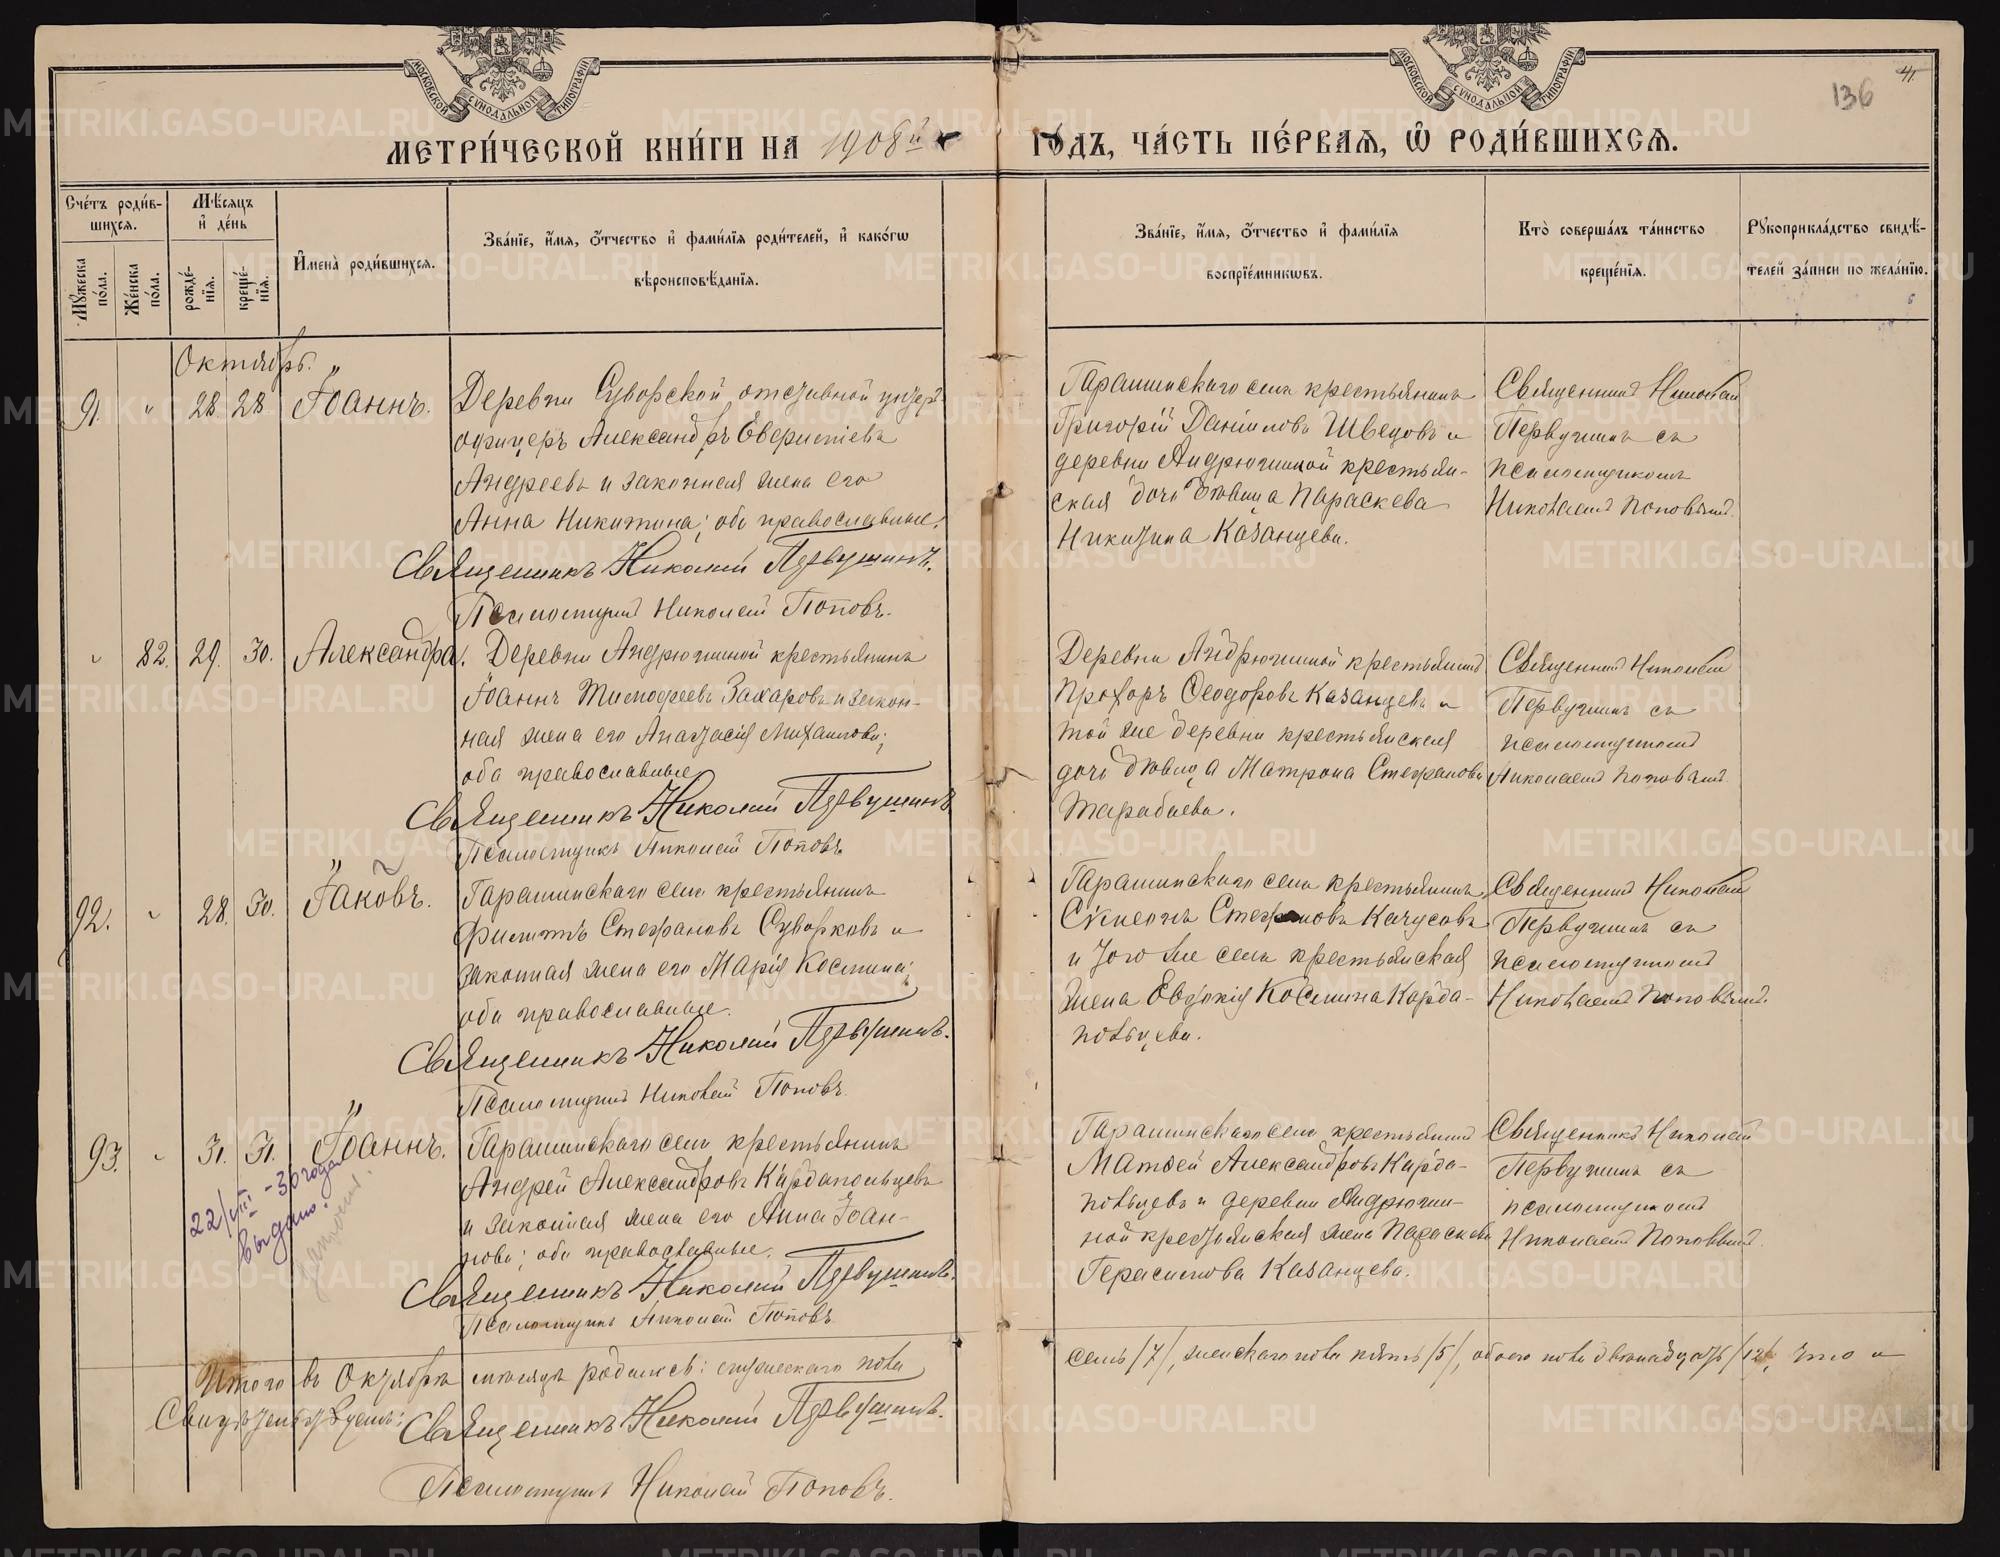 МОСКОВСКОЙ СѴНОДАЛЬНОЙ ТИПОГРАФІИ
МОСКОВСКОЙ СѴНОДАЛЬНОЙ ТИПОГРАФІИ
41
136
МЕТРИ́ЧЕСКОЙ КНИ́ГИ НА 1908й ГО́ДЪ, ЧА́СТЬ ПЕ́РВАѦ, Ѡ РОДИ́ВШИХСѦ.
Сче́тъ роди́вшихсѧ.
Мꙋ́жеска по́ла.
Же́нска по́ла.
Мѣ́сѧцъ и҆ де́нь
рожде́нїѧ.
креще́нїѧ.
И҆мена̀ роди́вшихсѧ.
Зва́нїе, и҆́мѧ, ѻ҆́тчество и҆ фами́лїѧ роди́телей, и҆ како́гѡ вѣроисповѣ́данїѧ.
Зва́нїе, и҆́мѧ, ѻ҆́тчество и҆ фами́лїѧ воспрїе́мникѡвъ.
Кто̀ соверша́лъ та́инство креще́нїѧ.
Рꙋкоприкла́дство свидѣ́телей за́писи по жела́нїю.
Октябрь.
91. " 28 28 Іоаннъ.
Деревни Суворской отставной унтеръ
офицеръ Александръ Еверистіевъ
Андреевъ и законная жена его
Анна Никитина; оба православные.
Священникъ Николай Первушинъ.
Псаломщикъ Николай Поповъ.
Гарашинскаго села крестьянинъ
Григорій Даніиловъ Швецовъ и
деревни Андрюшиной крестьян-
ская дочь дѣвица Параскева
Никитина Казанцева.
Священникъ Николай
Первушинъ съ
псаломщикомъ
Николаемъ Поповымъ.
" 82. 29. 30. Александра.
Деревни Андрюшиной крестьянинъ
Іоаннъ Тимофеевъ Захаровъ и закон-
ная жена его Анастасія Михаилова;
оба православные
Священникъ Николай Первушинъ
Псаломщикъ Николай Поповъ
Деревни Андрюшиной крестьянинъ
Прохоръ Ѳеодоровъ Казанцевъ и
той же деревни крестьянская
дочь дѣвица Матрона Стефанова
Тарабаева.
Священникъ Николай
Первушинъ съ
псаломщикомъ
Николаемъ Поповымъ.
92. " 28. 30. Іаковъ.
Гарашинскаго села крестьянинъ
Филиппъ Стефановъ Суворковъ и
законная жена его Марія Космина;
оба православные.
Священникъ Николай Первушинъ.
Псаломщикъ Николай Поповъ.
Гарашинскаго села крестьянинъ
Сѵмеонъ Стефановъ Качусовъ
и того же села крестьянская
жена Евдокія Космина Карда-
польцева.
Священникъ Николай
Первушинъ съ
псаломщикомъ
Николаемъ Поповымъ.
93. " 31. 31. Іоаннъ.
22/VIII - 36 года
выдано.
Гарашинскаго села крестьянинъ
Андрей Александровъ Кардапольцевъ
и законная жена его Анна Іоан-
нова; оба православные.
Священникъ Николай Первушинъ.
Псаломщикъ Николай Поповъ
Гарашинскаго села крестьянинъ
Матѳей Александровъ Карда-
польцевъ и деревни Андрюши-
ной крестьянская жена Параскева
Герасимова Казанцева.
Священникъ Николай
Первушинъ съ
псаломщикомъ
Николаемъ Поповымъ.
Итого въ Октябрѣ мѣсяцѣ родилось: мужескаго пола
семь /7/, женскаго пола пять /5/, обоего пола двѣнадцать /12/, что и
Свидѣтельствуемъ: Священникъ Николай Первушинъ.
Псаломщикъ Николай Поповъ.
METRIKI.GASO-URAL.RU